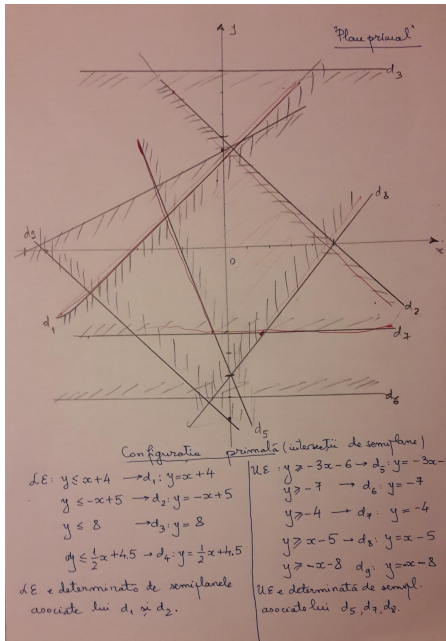 "Plan primal"
y
d₃
d₈
d₉
0
x
d₁
d₂
d₇
d₆
d₅
Configurația primală (intersecții de semiplane)
LE: y ≤ x+4 → d₁: y = x+4
y ≤ -x+5 → d₂: y = -x+5
y ≤ 8 → d₃: y = 8
y ≤ 1/2 x + 4.5 → d₄: y = 1/2 x + 4.5
LE e determinată de semiplanele
asociate lui d₁ și d₂.
UE: y ≥ -3x-6 → d₅: y = -3x-
y ≥ -7 → d₆: y = -7
y ≥ -4 → d₇: y = -4
y ≥ x-5 → d₈: y = x-5
y ≥ -x-8 d₉: y = -x-8
UE e determinată de semipl.
asociate lui d₅, d₇, d₈.